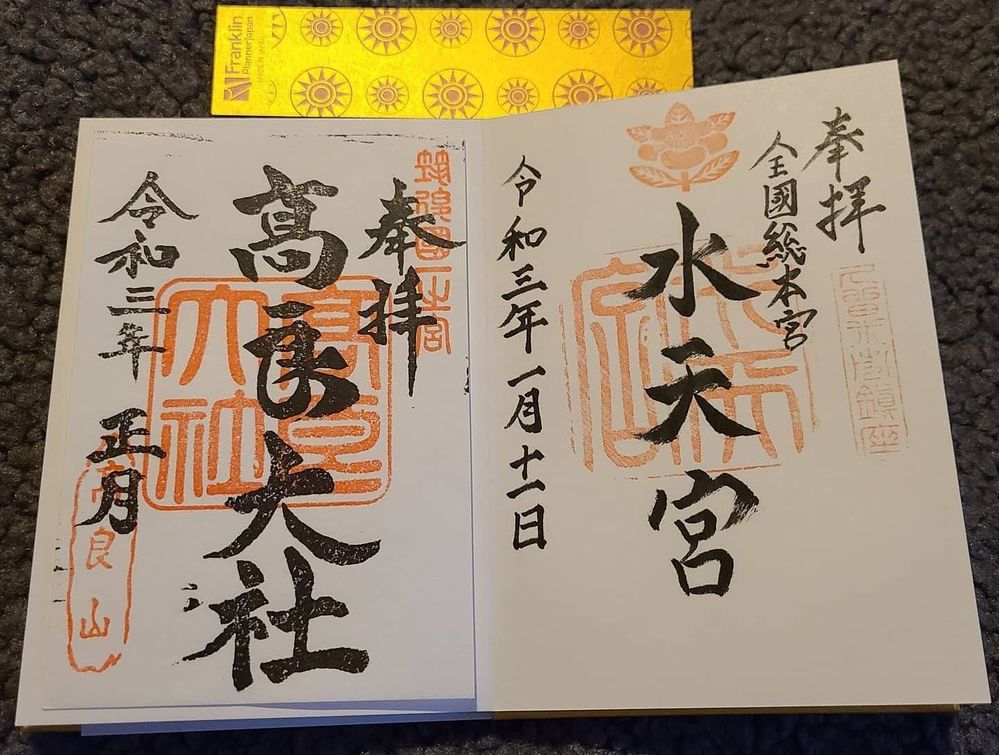 Franklin
Planner Japan
MADE IN JAPAN
奉拝
全國総本宮
水天宮
令和三年一月十一日
筑後國一之宮
奉拝
髙良大社
高良大社
令和三年 正月
高良山